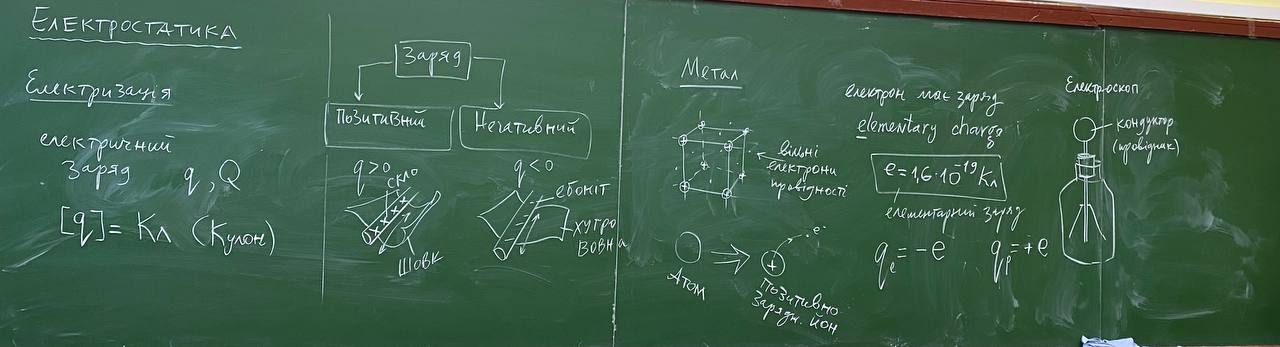 Електростатика
Електризація
електричний
заряд q, Q
[q] = Кл (Кулон)
Заряд
Позитивний
Негативний
q>0
скло
шовк
q<0
ебоніт
хутро
вовна
Метал
вільні
електрони
провідності
Атом
e⁻
+
Позитивно
зарядж. йон
електрон має заряд
elementary charge
e = 1,6·10⁻¹⁹ Кл
елементарний заряд
qₑ = -e, qₚ = +e
Електроскоп
кондуктор
(провідник)